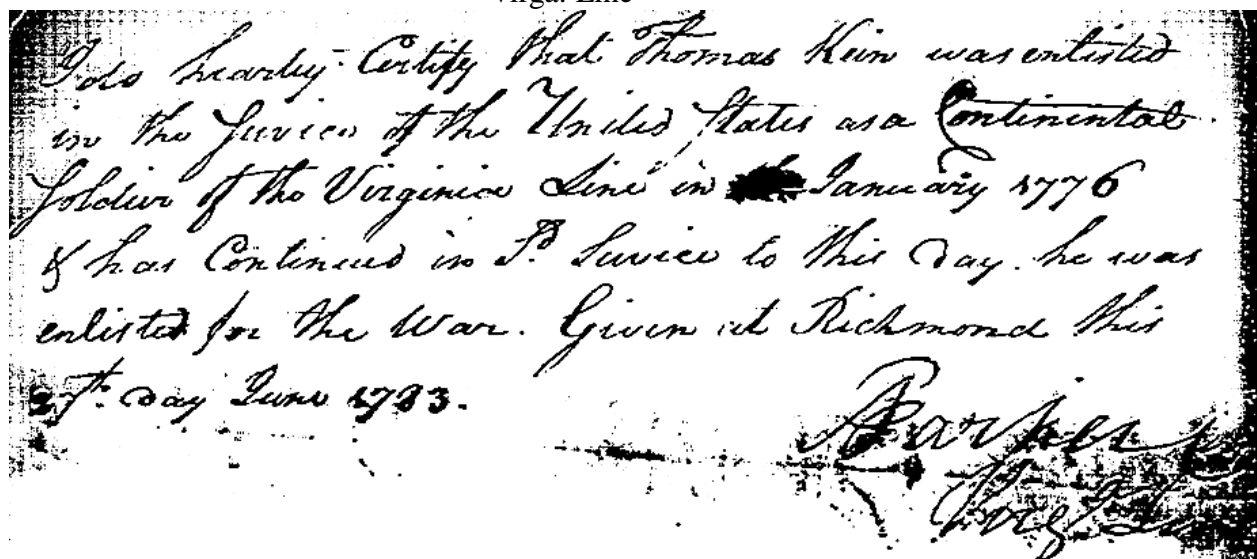 Virga. Line
I do hearby Certify that Thomas Kein was enlisted
in the Service of the United States as a Continental
Soldier of the Virginia Line in January 1776
& has Continued in Sd. Service to this Day. he was
enlisted for the War. Given at Richmond this
27th. day June 1783.
Parker
Virg